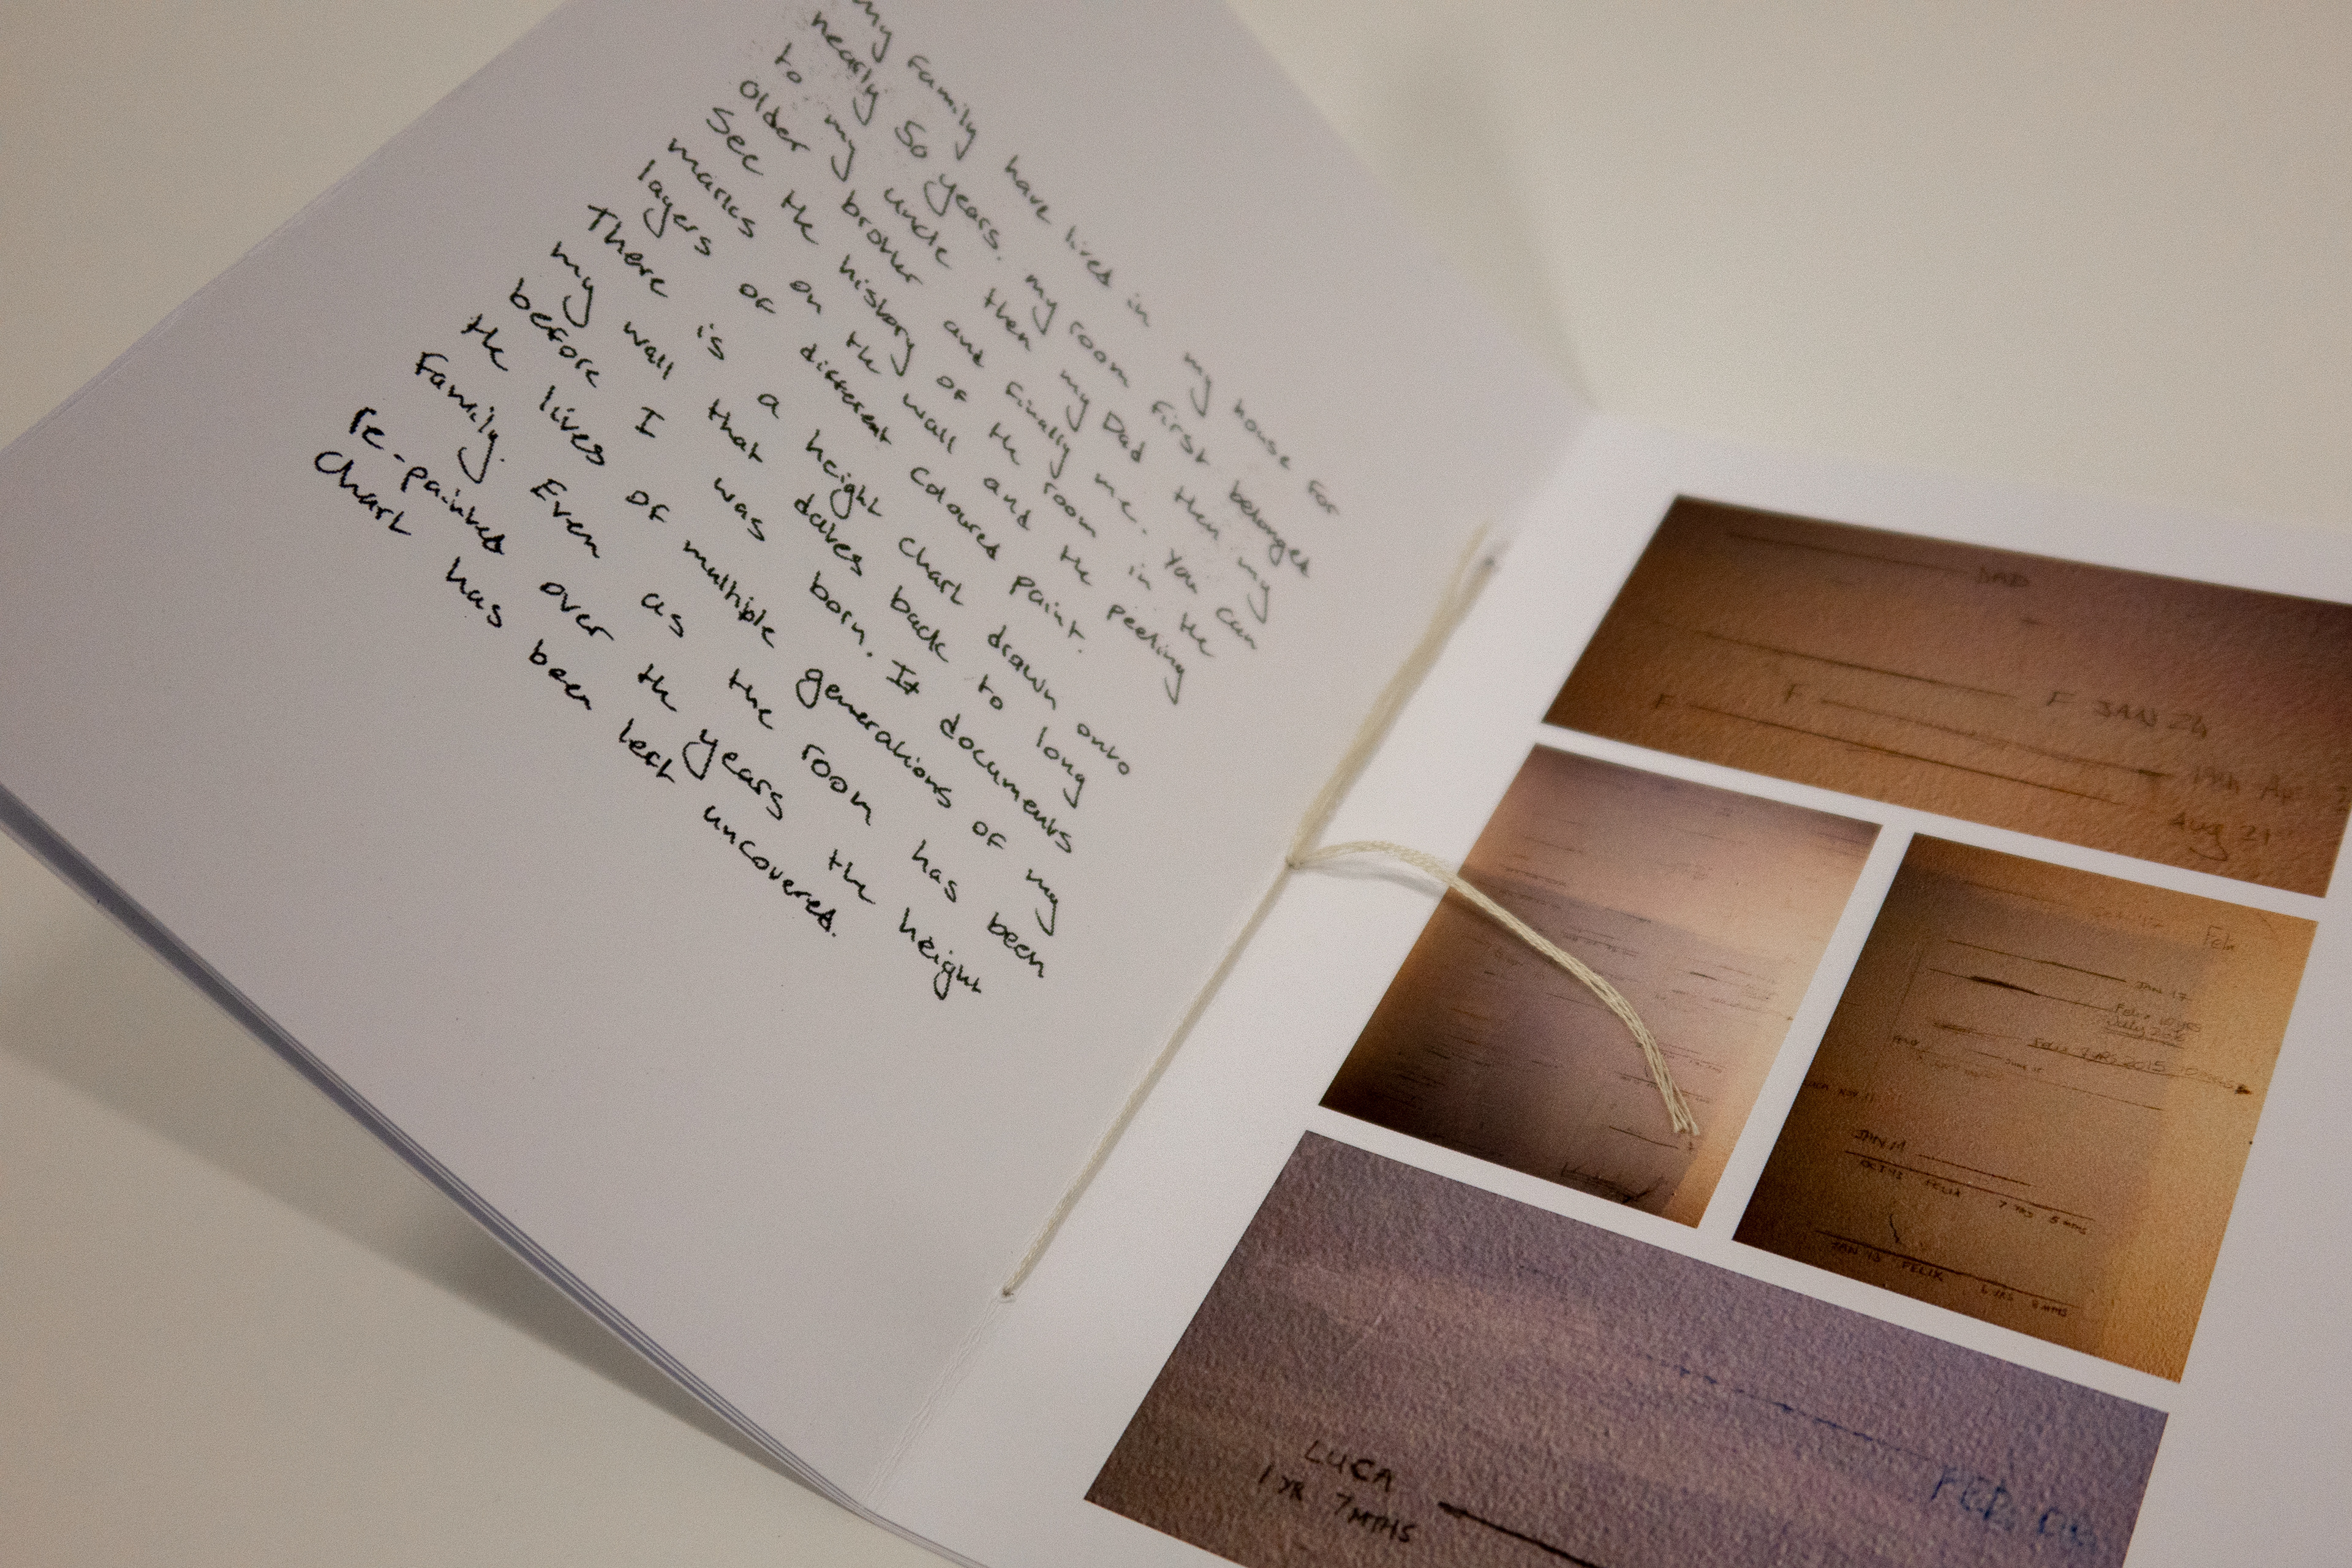 my family have lived in my house for
nearly 50 years. my room first belonged
to my uncle then my Dad then my
older brother and finally me. You can
see the history of the room in the
marks on the wall and the peeling
layers of different coloured paint.
There is a height chart drawn onto
my wall that dates back to long
before I was born. It documents
the lives of multiple generations of my
family. Even as the room has been
re-painted over the years the height
chart has been left uncovered.
DAD
F JAN 24
F
F
Aug 21
JAN 17
JAN 14
OCT 12 FELIX 7 YRS 5 MTHS
JAN 12 FELIX 6 YRS 8 MTHS
LUCA
1 YR 7 MTHS